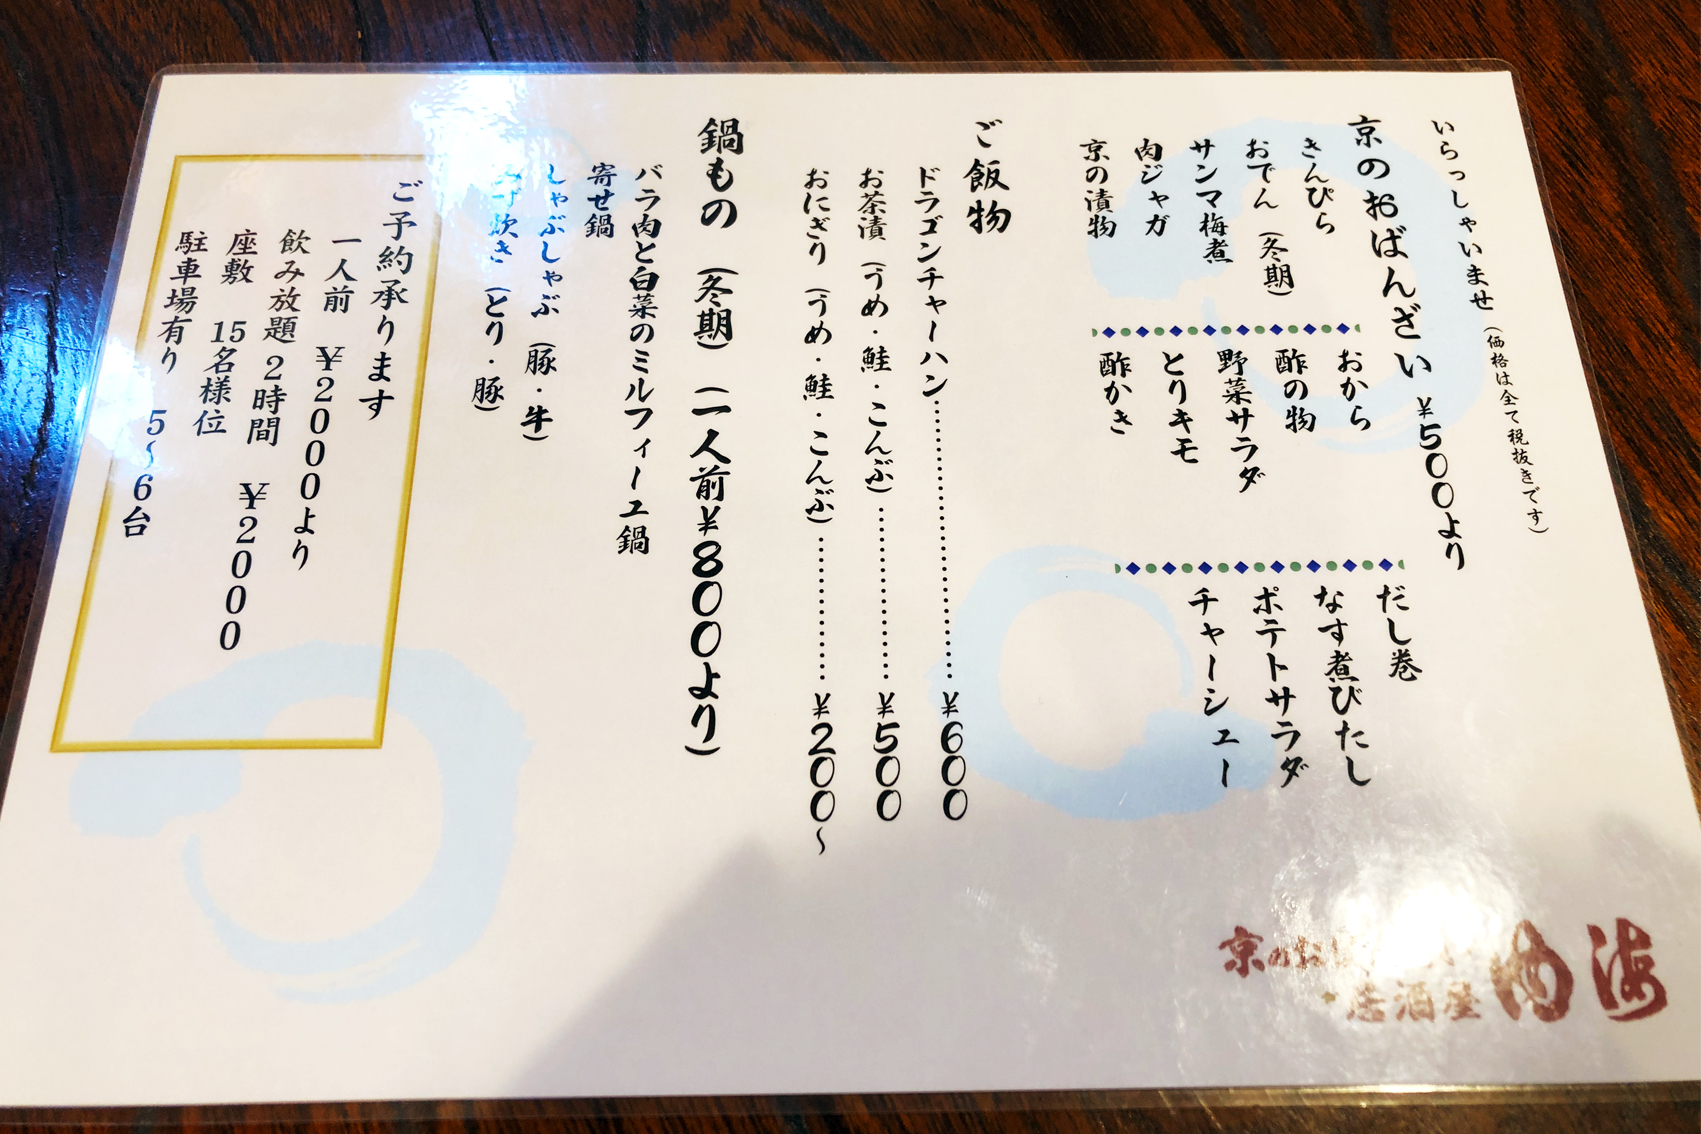 いらっしゃいませ（価格は全て税抜きです）
京のおばんざい ¥500より
きんぴら
おでん（冬期）
サンマ梅煮
肉ジャガ
京の漬物
おから
酢の物
野菜サラダ
とりキモ
酢かき
だし巻
なす煮びたし
ポテトサラダ
チャーシュー
ご飯物
ドラゴンチャーハン…………………………¥600
お茶漬（うめ・鮭・こんぶ）………………¥500
おにぎり（うめ・鮭・こんぶ）……………¥200〜
鍋もの（冬期）（一人前¥800より）
バラ肉と白菜のミルフィーユ鍋
寄せ鍋
しゃぶしゃぶ（豚・牛）
炊き（とり・豚）
ご予約承ります
一人前 ¥2000より
飲み放題 2時間 ¥2000
座敷 15名様位
駐車場有り 5〜6台
京のお
居酒屋